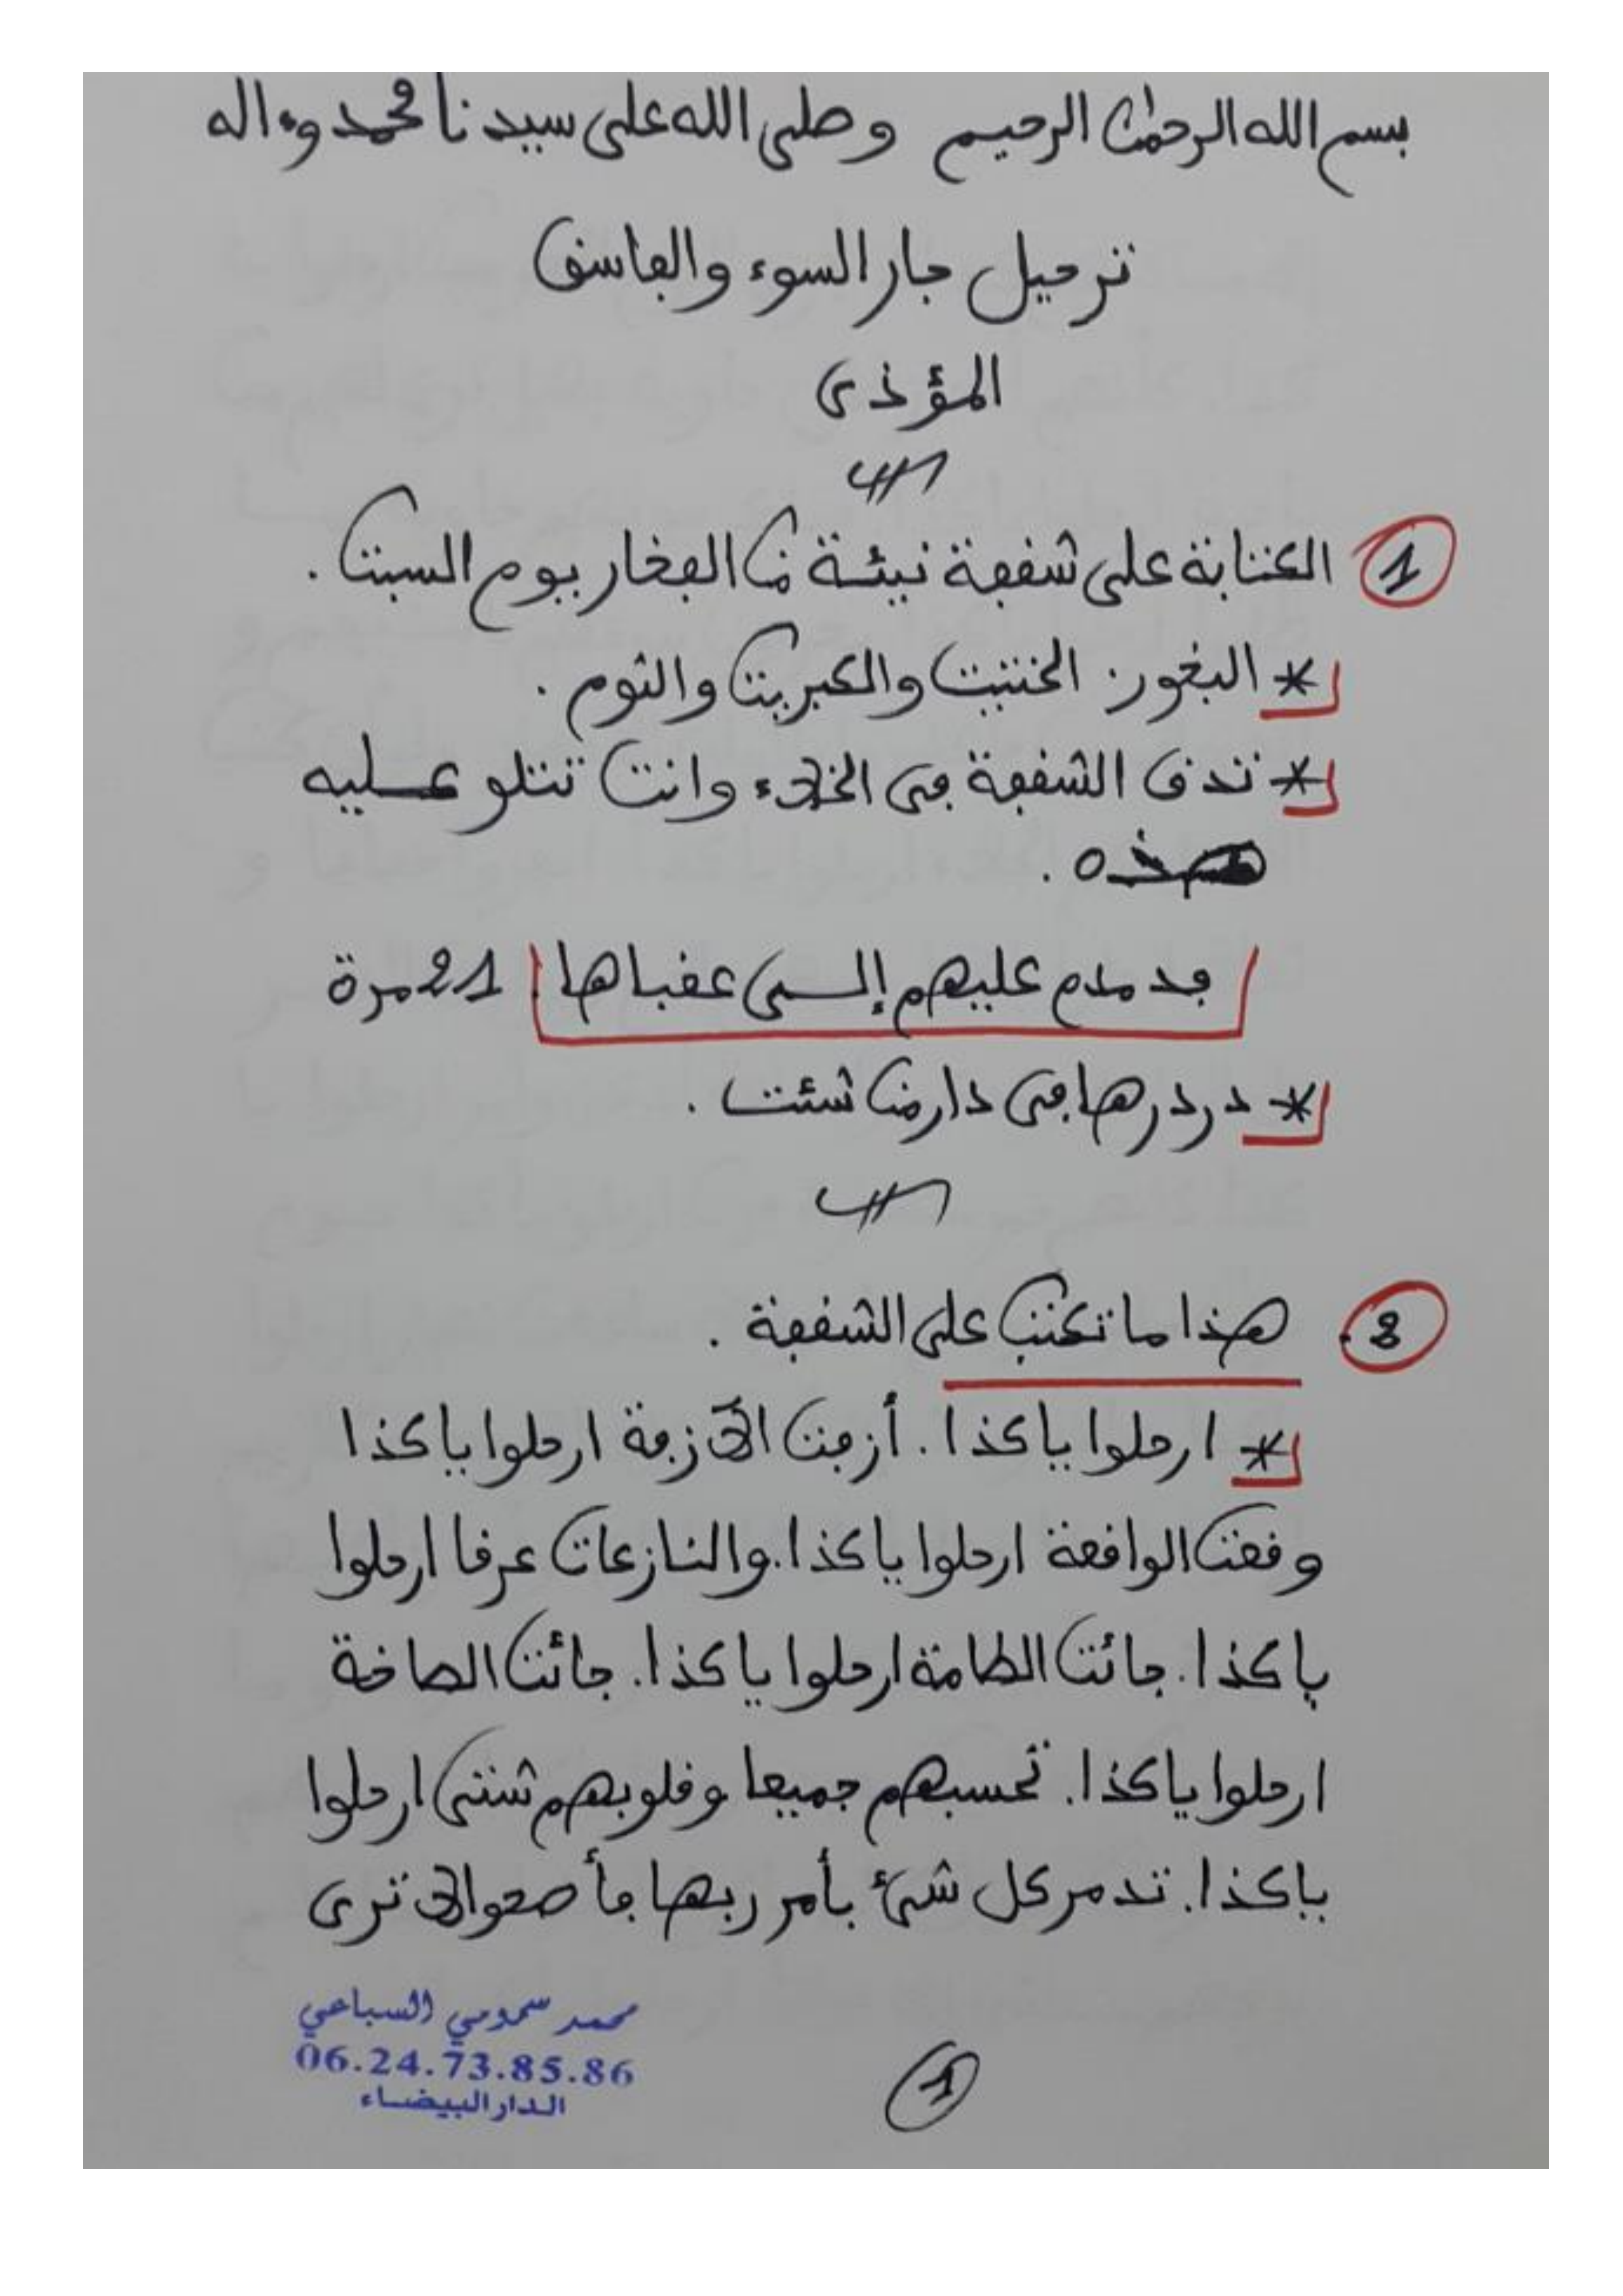 بسم الله الرحمن الرحيم وصلى الله على سيدنا محمد وءاله
ترحيل جار السوء والفاسق
المؤذى
1 الكتابة على شقفة نيئة من الفخار يوم السبت .
* البخور: الحنتيت والكبريت والثوم .
* تدق الشقفة فى الخلاء وانت تتلو عليه
هذه .
فدمدم عليهم إلى عقباها 21 مرة
* دردرها فى دار من شئت .
2 هذا ما تكتب على الشقفة .
* ارحلوا ياكذا . أزفت الآزفة ارحلوا ياكذا
وقعت الواقعة ارحلوا ياكذا . والنازعات غرقا ارحلوا
ياكذا . جائت الطامة ارحلوا ياكذا . جائت الصاخة
ارحلوا ياكذا . تحسبهم جميعا وقلوبهم شتى ارحلوا
ياكذا . تدمر كل شئ بأمر ربها فأصحوا لا ترى
محمد سمومي السباعي
06.24.73.85.86
الدار البيضاء
1